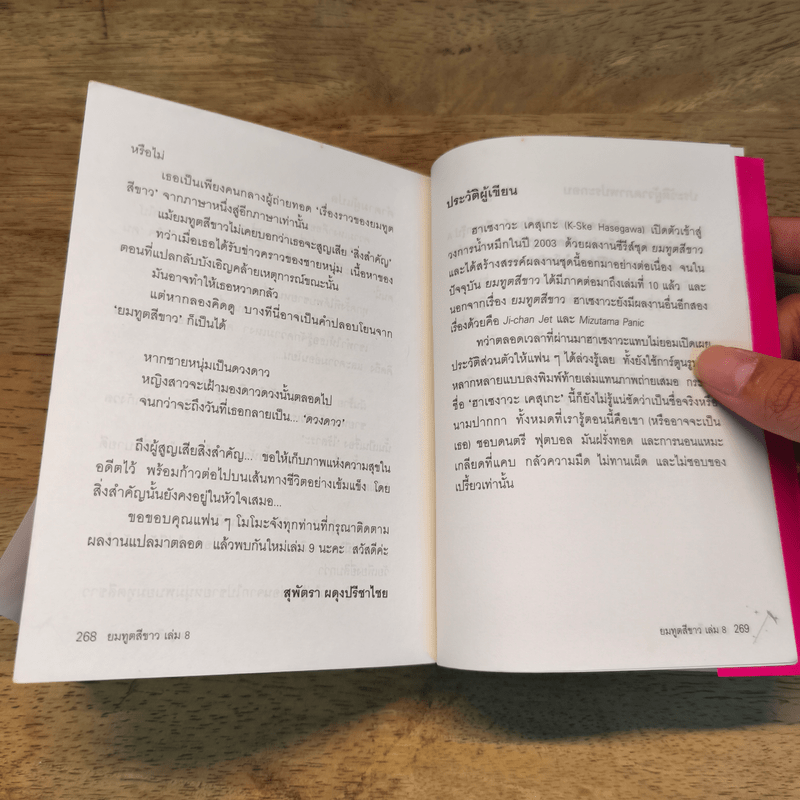 หรือไม่
เธอเป็นเพียงคนกลางผู้ถ่ายทอด ‘เรื่องราวของยมทูต
สีขาว’ จากภาษาหนึ่งสู่อีกภาษาเท่านั้น
แม้ยมทูตสีขาวไม่เคยบอกว่าเธอจะสูญเสีย ‘สิ่งสำคัญ’
ทว่าเมื่อเธอได้รับข่าวคราวของชายหนุ่ม เนื้อหาของ
ตอนที่แปลกลับบังเอิญคล้ายเหตุการณ์ขณะนั้น
มันอาจทำให้เธอหวาดกลัว
แต่หากลองคิดดู บางทีนี่อาจเป็นคำปลอบโยนจาก
‘ยมทูตสีขาว’ ก็เป็นได้
หากชายหนุ่มเป็นดวงดาว
หญิงสาวจะเฝ้ามองดาวดวงนั้นตลอดไป
จนกว่าจะถึงวันที่เธอกลายเป็น... ‘ดวงดาว’
ถึงผู้สูญเสียสิ่งสำคัญ... ขอให้เก็บภาพแห่งความสุขใน
อดีตไว้ พร้อมก้าวต่อไปบนเส้นทางชีวิตอย่างเข้มแข็ง โดย
สิ่งสำคัญนั้นยังคงอยู่ในหัวใจเสมอ...
ขอขอบคุณแฟน ๆ โมโมะจังทุกท่านที่กรุณาติดตาม
ผลงานแปลมาตลอด แล้วพบกันใหม่เล่ม 9 นะคะ สวัสดีค่ะ
สุพัตรา ผดุงปรีชาไชย
268 ยมทูตสีขาว เล่ม 8
ประวัติผู้เขียน
ฮาเซงาวะ เคสุเกะ (K-Ske Hasegawa) เปิดตัวเข้าสู่
วงการน้ำหมึกในปี 2003 ด้วยผลงานซีรีส์ชุด ยมทูตสีขาว
และได้สร้างสรรค์ผลงานชุดนี้ออกมาอย่างต่อเนื่อง จนใน
ปัจจุบัน ยมทูตสีขาว ได้มีภาคต่อมาถึงเล่มที่ 10 แล้ว และ
นอกจากเรื่อง ยมทูตสีขาว ฮาเซงาวะยังมีผลงานอื่นอีกสอง
เรื่องด้วยคือ Ji-chan Jet และ Mizutama Panic
ทว่าตลอดเวลาที่ผ่านมาฮาเซงาวะแทบไม่ยอมเปิดเผย
ประวัติส่วนตัวให้แฟน ๆ ได้ล่วงรู้เลย ทั้งยังใช้การ์ตูนรูป
หลากหลายแบบลงพิมพ์ท้ายเล่มแทนภาพถ่ายเสมอ
ชื่อ ‘ฮาเซงาวะ เคสุเกะ’ นี้ก็ยังไม่รู้แน่ชัดว่าเป็นชื่อจริงหรือ
นามปากกา ทั้งหมดที่เรารู้ตอนนี้คือเขา (หรืออาจจะเป็น
เธอ) ชอบดนตรี ฟุตบอล มันฝรั่งทอด และการนอนแหมะ
เกลียดที่แคบ กลัวความมืด ไม่ทานเผ็ด และไม่ชอบของ
เปรี้ยวเท่านั้น
ยมทูตสีขาว เล่ม 8 269